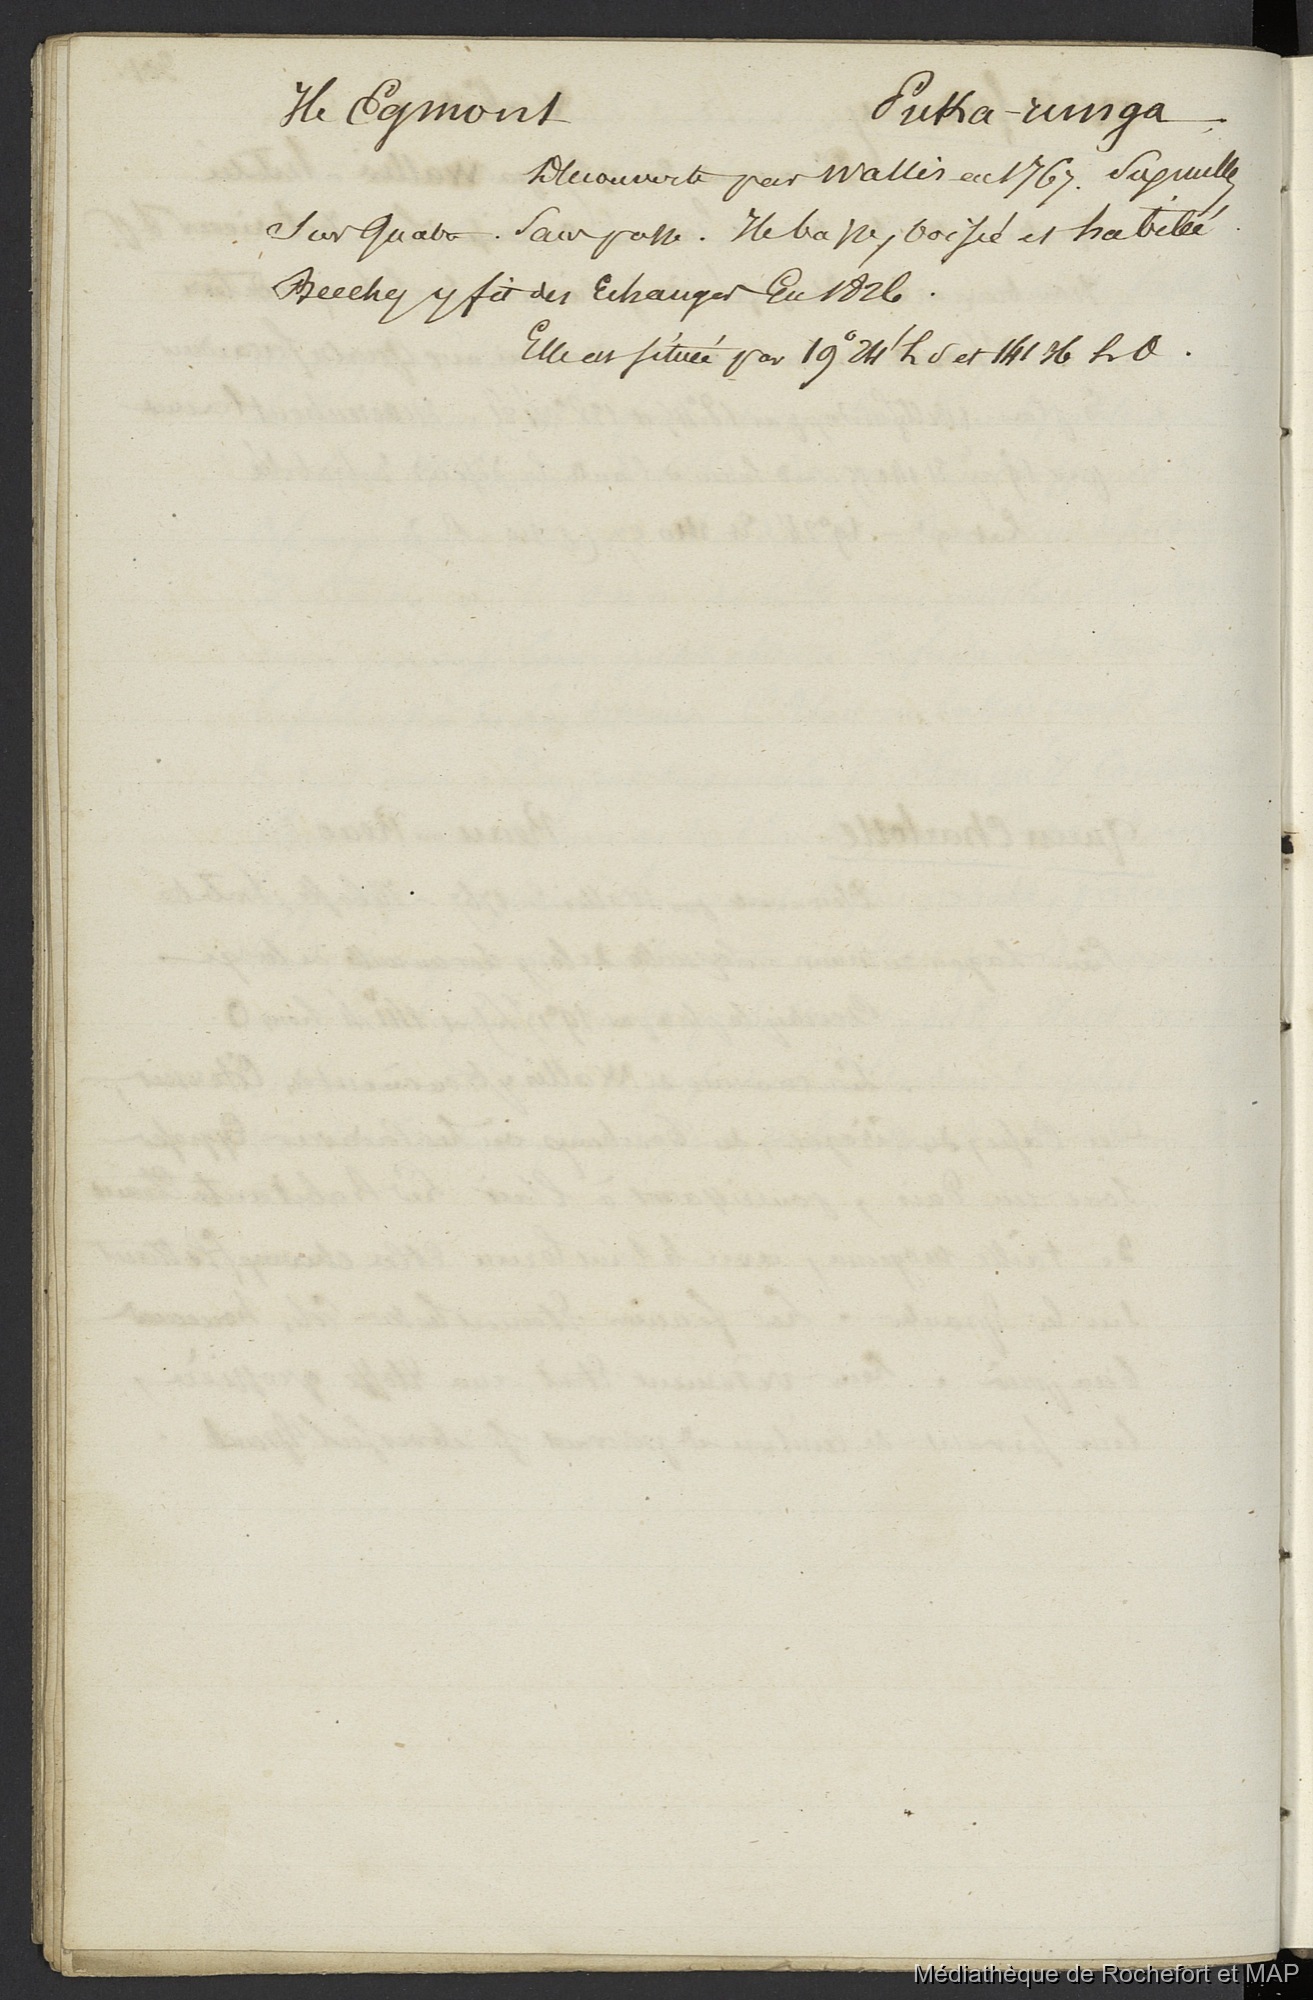 Ile Egmont Puka-runga.
Découverte par Wallis en 1767. Sept milles
Sur Quatre. Sans passe. Ile basse, boisée et habitée.
Beechey y fit des Echanges En 1826.
Elle est située par 19° 24' L S et 141 36 L O.
Médiathèque de Rochefort et MAP